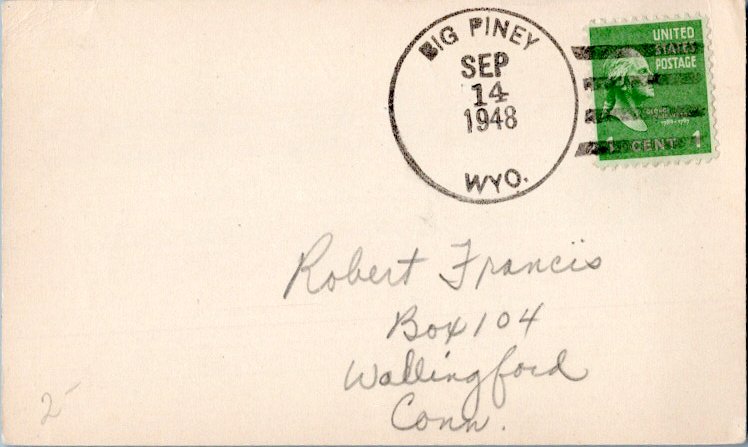 BIG PINEY
SEP
14
1948
WYO.
UNITED
STATES
POSTAGE
GEORGE
1 CENT 1
Robert Francis
Box 104
Wallingford
Conn.
2-